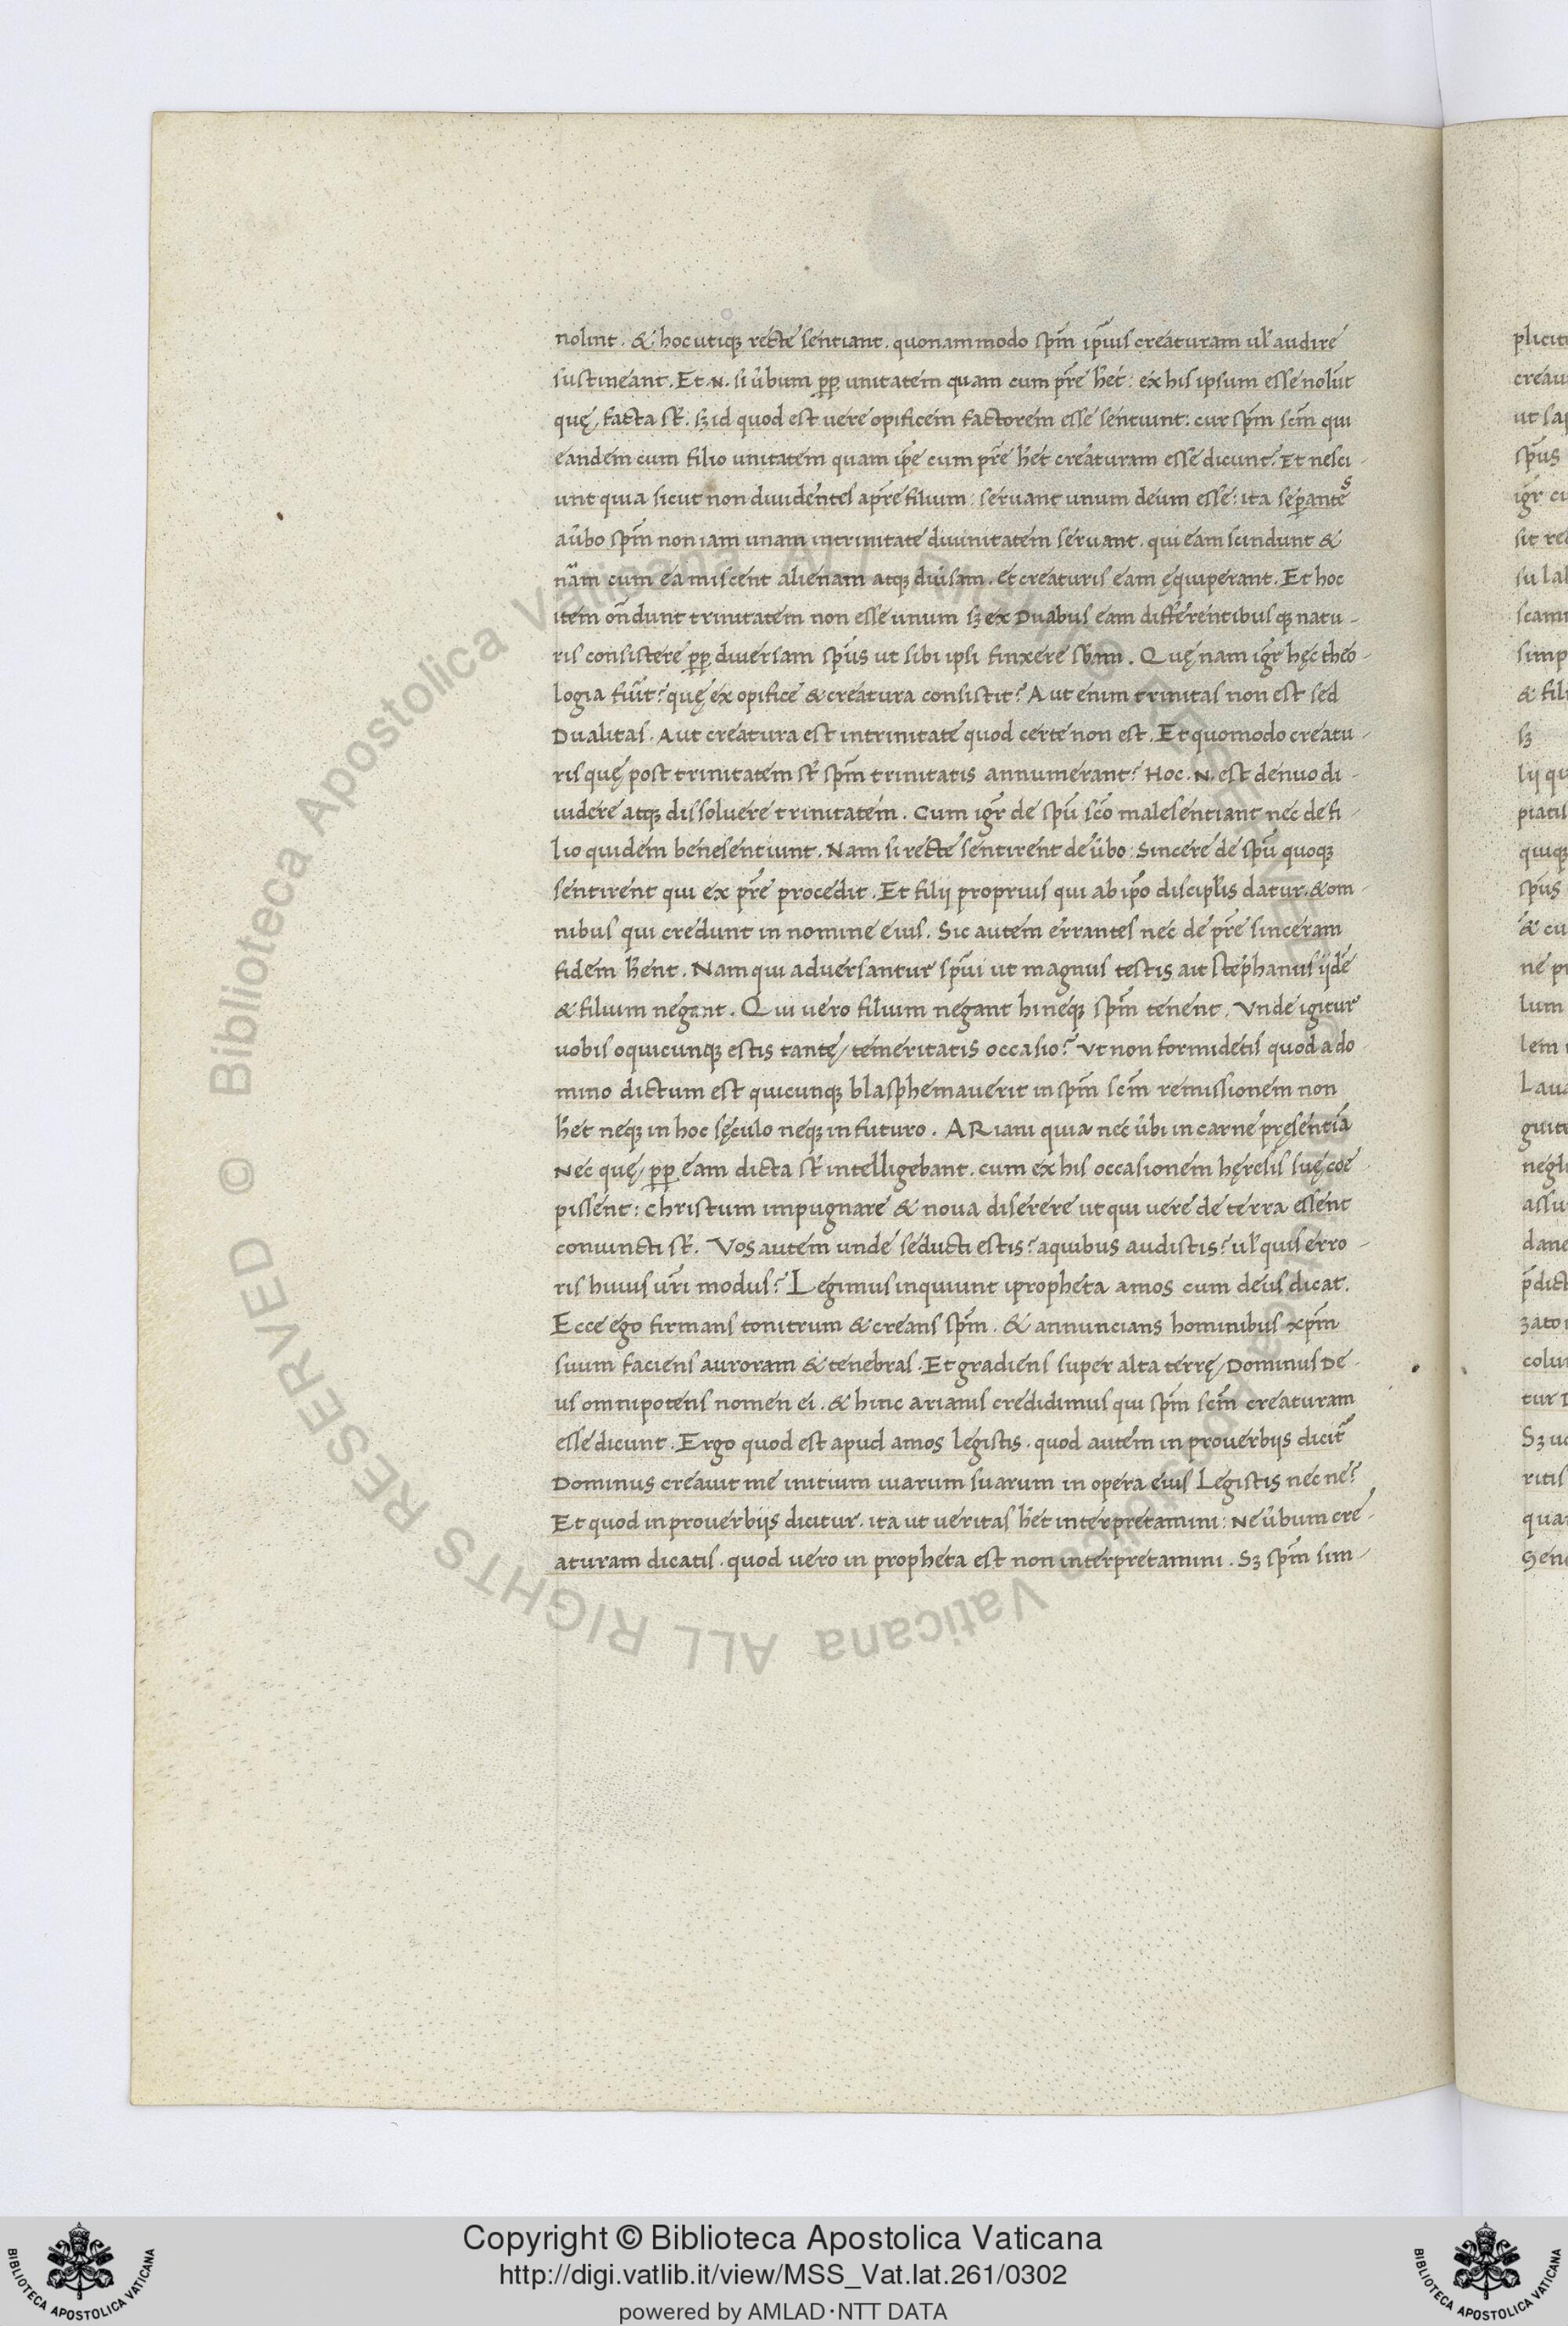 nolint. & hoc utiqꝫ recte sentiant. quonammodo sp̄m ip̄ius creaturam ul̓ audire
sustineant. Et .N. si u̓bum pp̱ unitatem quam cum pr̄e h̓et: ex his ipsum esse nolūt
quę facta st̄. sꝫ id quod est vere opificem factorem esse sentiunt: cur sp̄m scm̄ qui
eandem cum filio unitatem quam ip̄e cum pr̄e h̓et creaturam esse dicunt? Et nesci-
unt quia sicut non diuidentes apr̄e filium: seruant unum deum esse: ita sep̱antes
au̓bo sp̄m non iam unam intrinitate diuinitatem seruant. qui eam scindunt &
nām cum ea miscent alienam atqꝫ diu̓sam. et creaturis eam ęquiperant. Et hoc
item on̄dunt trinitatem non esse unum sꝫ ex Duabus eam differentibusqꝫ natu-
ris consistere pp̱ diversam sp̄us ut sibi ipsi finxere sb̄am. Quęnam igr̄ hęc theo-
logia fuı̄t? quę ex opifice & creatura consistit? Aut enim trinitas non est sed
Dualitas. Aut creatura est intrinitate quod certe non est. Et quomodo creatu-
ris quę post trinitatem st̄ sp̄m trinitatis annumerant? Hoc .N. est denuo di-
uidere atqꝫ dissoluere trinitatem. Cum igr̄ de spū scō malesentiant nec de fi-
lio quidem benesentiunt. Nam si recte sentirent de u̓bo: Sincere de spū quoqꝫ
sentirent qui ex pr̄e procedit. Et filij proprius qui ab ip̄o discipl̓is datur. & om-
nibus qui credunt in nomine eius. Sic autem errantes nec de pr̄e sinceram
fidem h̓ent. Namqui adversantur sp̄ui ut magnus testis ait stephanus ijdē
& filium negant. Qui uero filium negant hi neqꝫ sp̄m tenent. Vnde igitur
uobis oquicunqꝫ estis tantę temeritatis occasio? Vt non formidetis quod a do-
mino dictum est quicunqꝫ blasphemauerit in sp̄m scm̄ remissionem non
h̓et neqꝫ in hoc sęculo neqꝫ in futuro. ARiani quia nec u̓bi in carne pręsentiā
Nec quę pp̱ eam dicta st̄ intelligebant. cum ex his occasionem hęresis suę coe-
pissent: christum impugnare & noua diserere ut qui uere de terra essent
conuincti st̄. Vos autem unde seducti estis? aquibus audistis? ul̓ quis erro-
ris huius ur̄i modus? Legimus inquiunt ipropheta amos cum deus dicat.
Ecce ego firmans tonitrum & creans sp̄m. & annuncians hominibus xpm̄
suum faciens auroram & tenebras. Et gradiens super alta terrę Dominus De-
us omnipotens nomen ei. & hinc arianis credidimus qui sp̄m scm̄ creaturam
esse dicunt. Ergo quod est apud amos legistis. quod autem in proverbijs dicit̄
Dominus creauit me initium uiarum suarum in opera eius Legistis nec ne?
Et quod inprouerbijs dicitur. ita ut ueritas h̓et interpretamini: Ne u̓bum cre-
aturam dicatis. quod uero in propheta est non interpretamini. Sꝫ sp̄m sim-
Copyright © Biblioteca Apostolica Vaticana
http://digi.vatlib.it/view/MSS_Vat.lat.261/0302
powered by AMLAD·NTT DATA